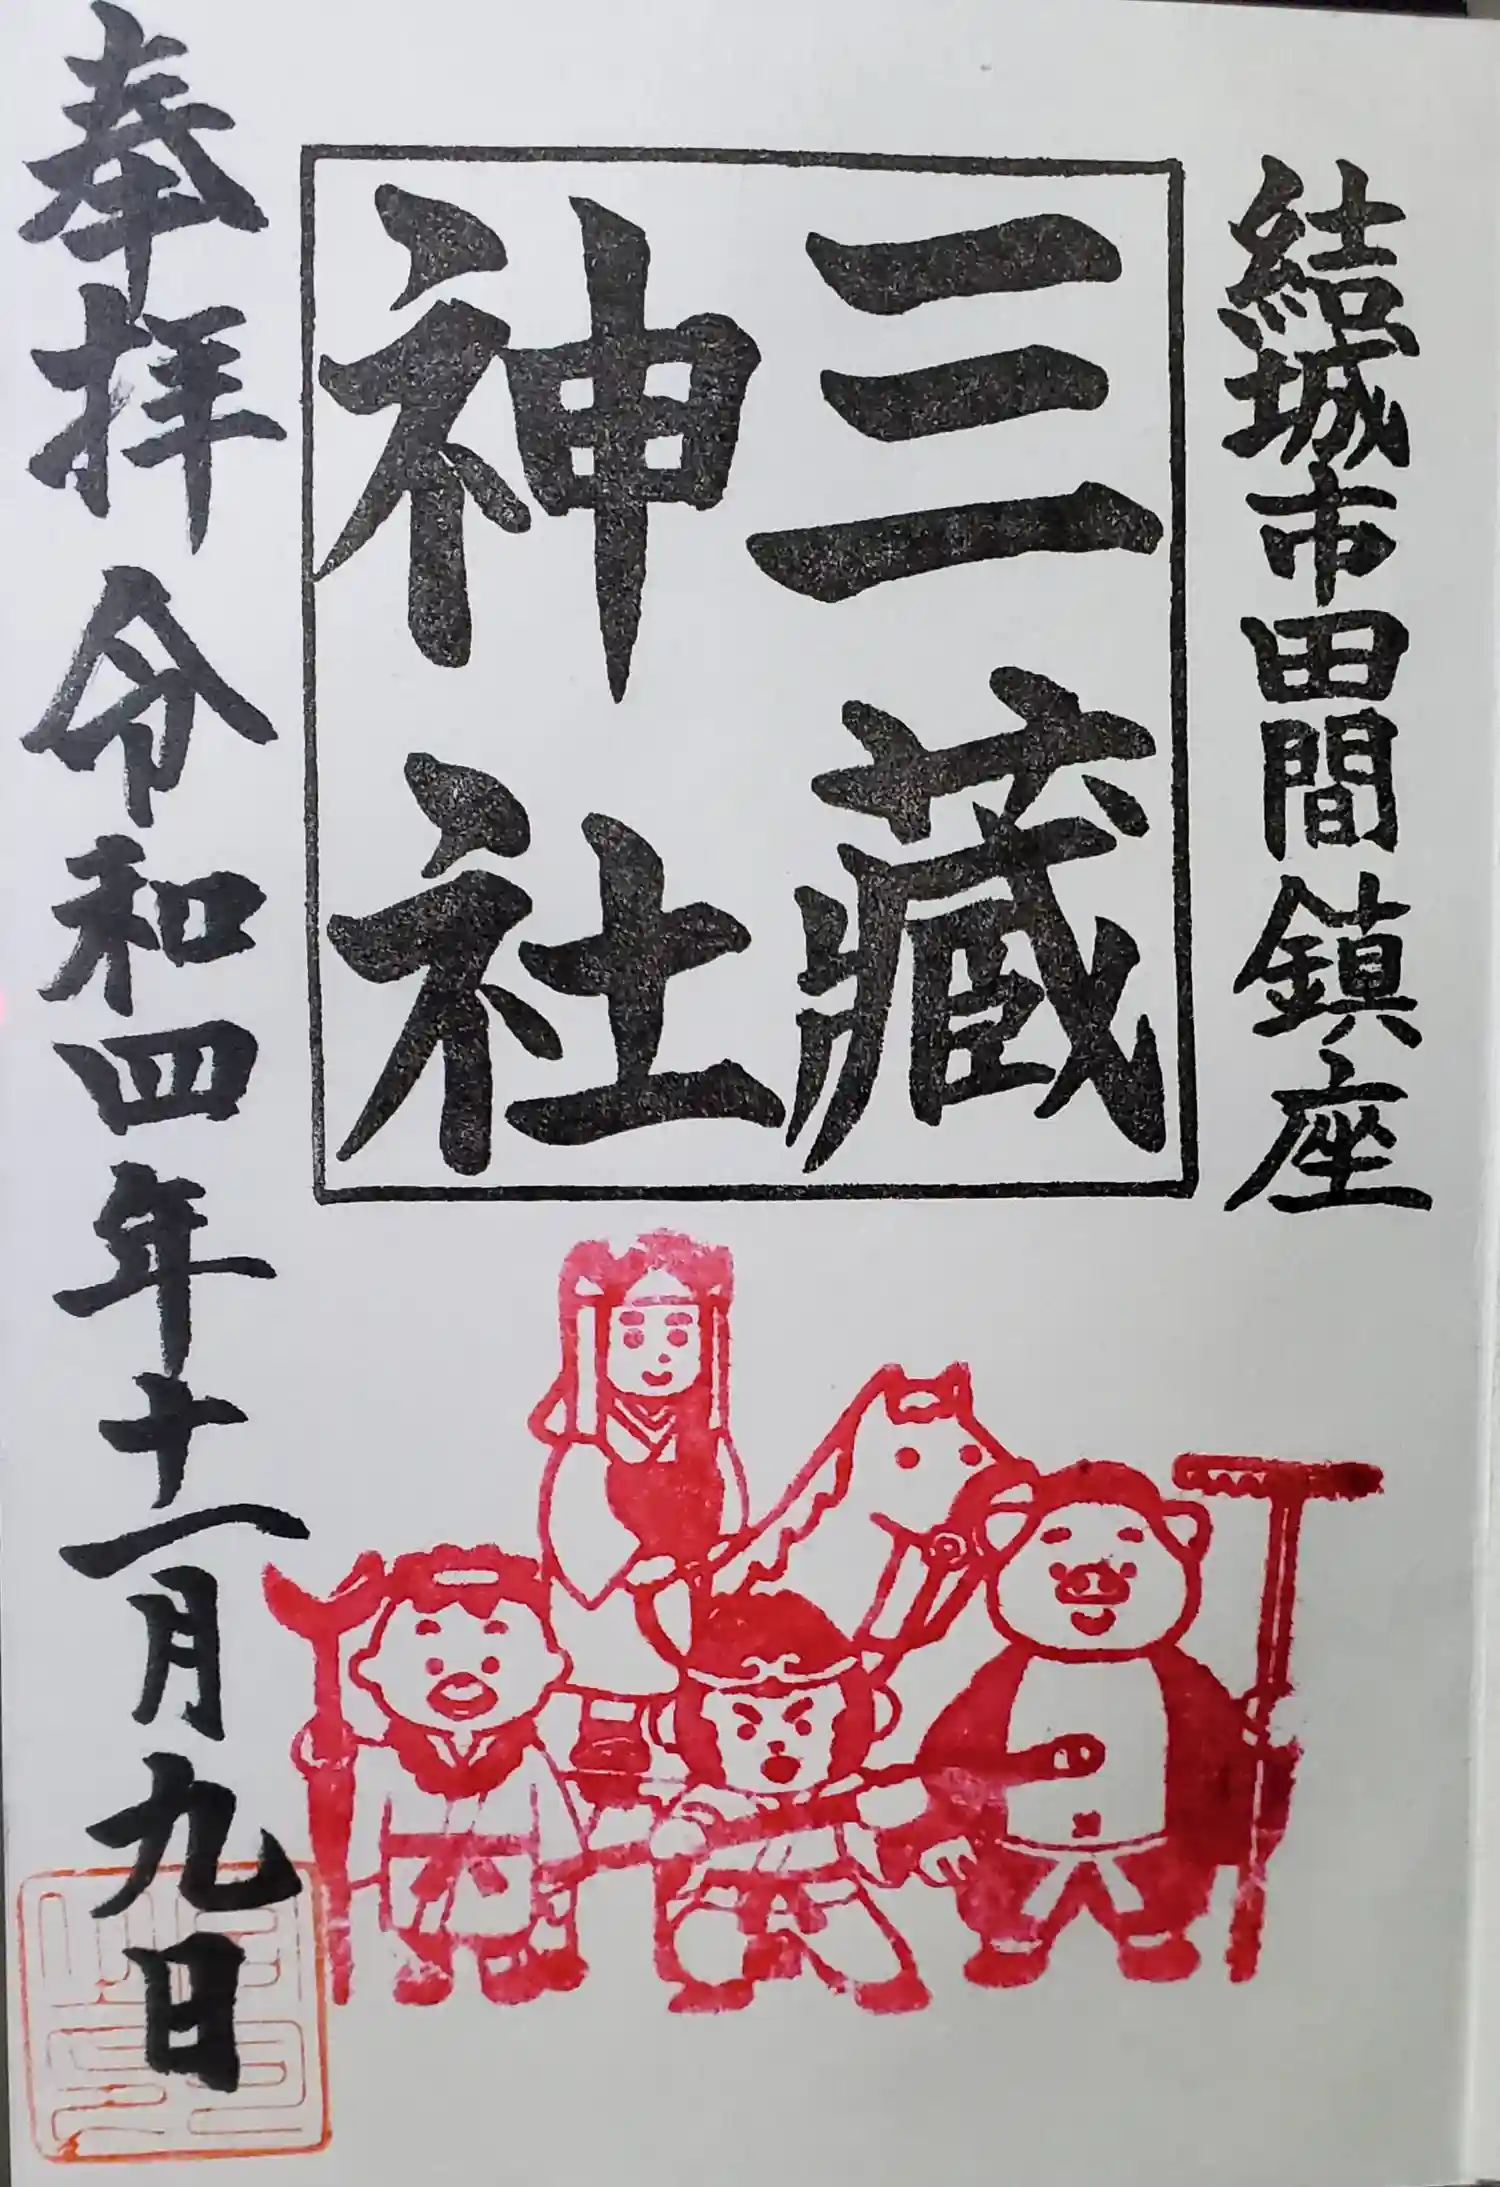 結城市田間鎮座
三藏
神社
奉拝 令和四年十一月九日